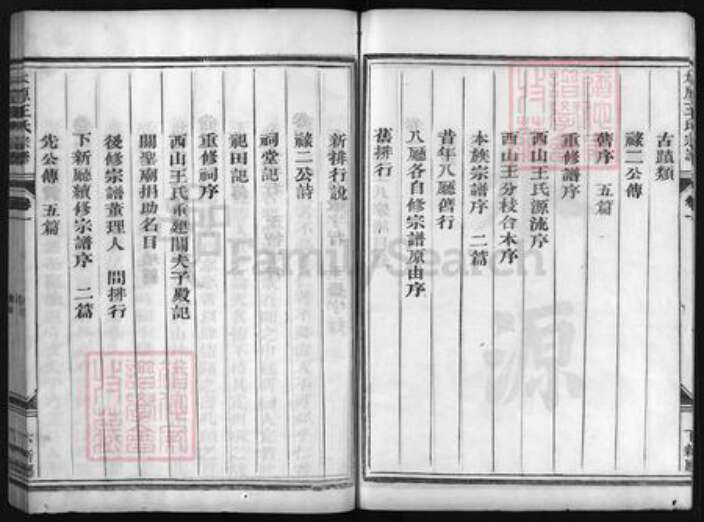 古蹟類
祿二公傳
舊序 五篇
重修譜序
西山王氏源流序
西山王分枝合本序
本族宗譜序 二篇
昔年八廳舊行
八廳各自修宗譜原由序
舊排行
新排行說
祿二公詩
祠堂記
祀田記
重修祠序
西山王氏重建關夫子殿記
關聖廟捐助名目
後修宗譜董理人 間排行
下新廳續修宗譜序 二篇
先公傳 五篇
卷一
下新廳
FamilySearch
源